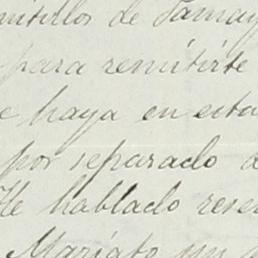 de Tamay
para remitirte
haya en esta
por separado
He hablado rese
Mariato un